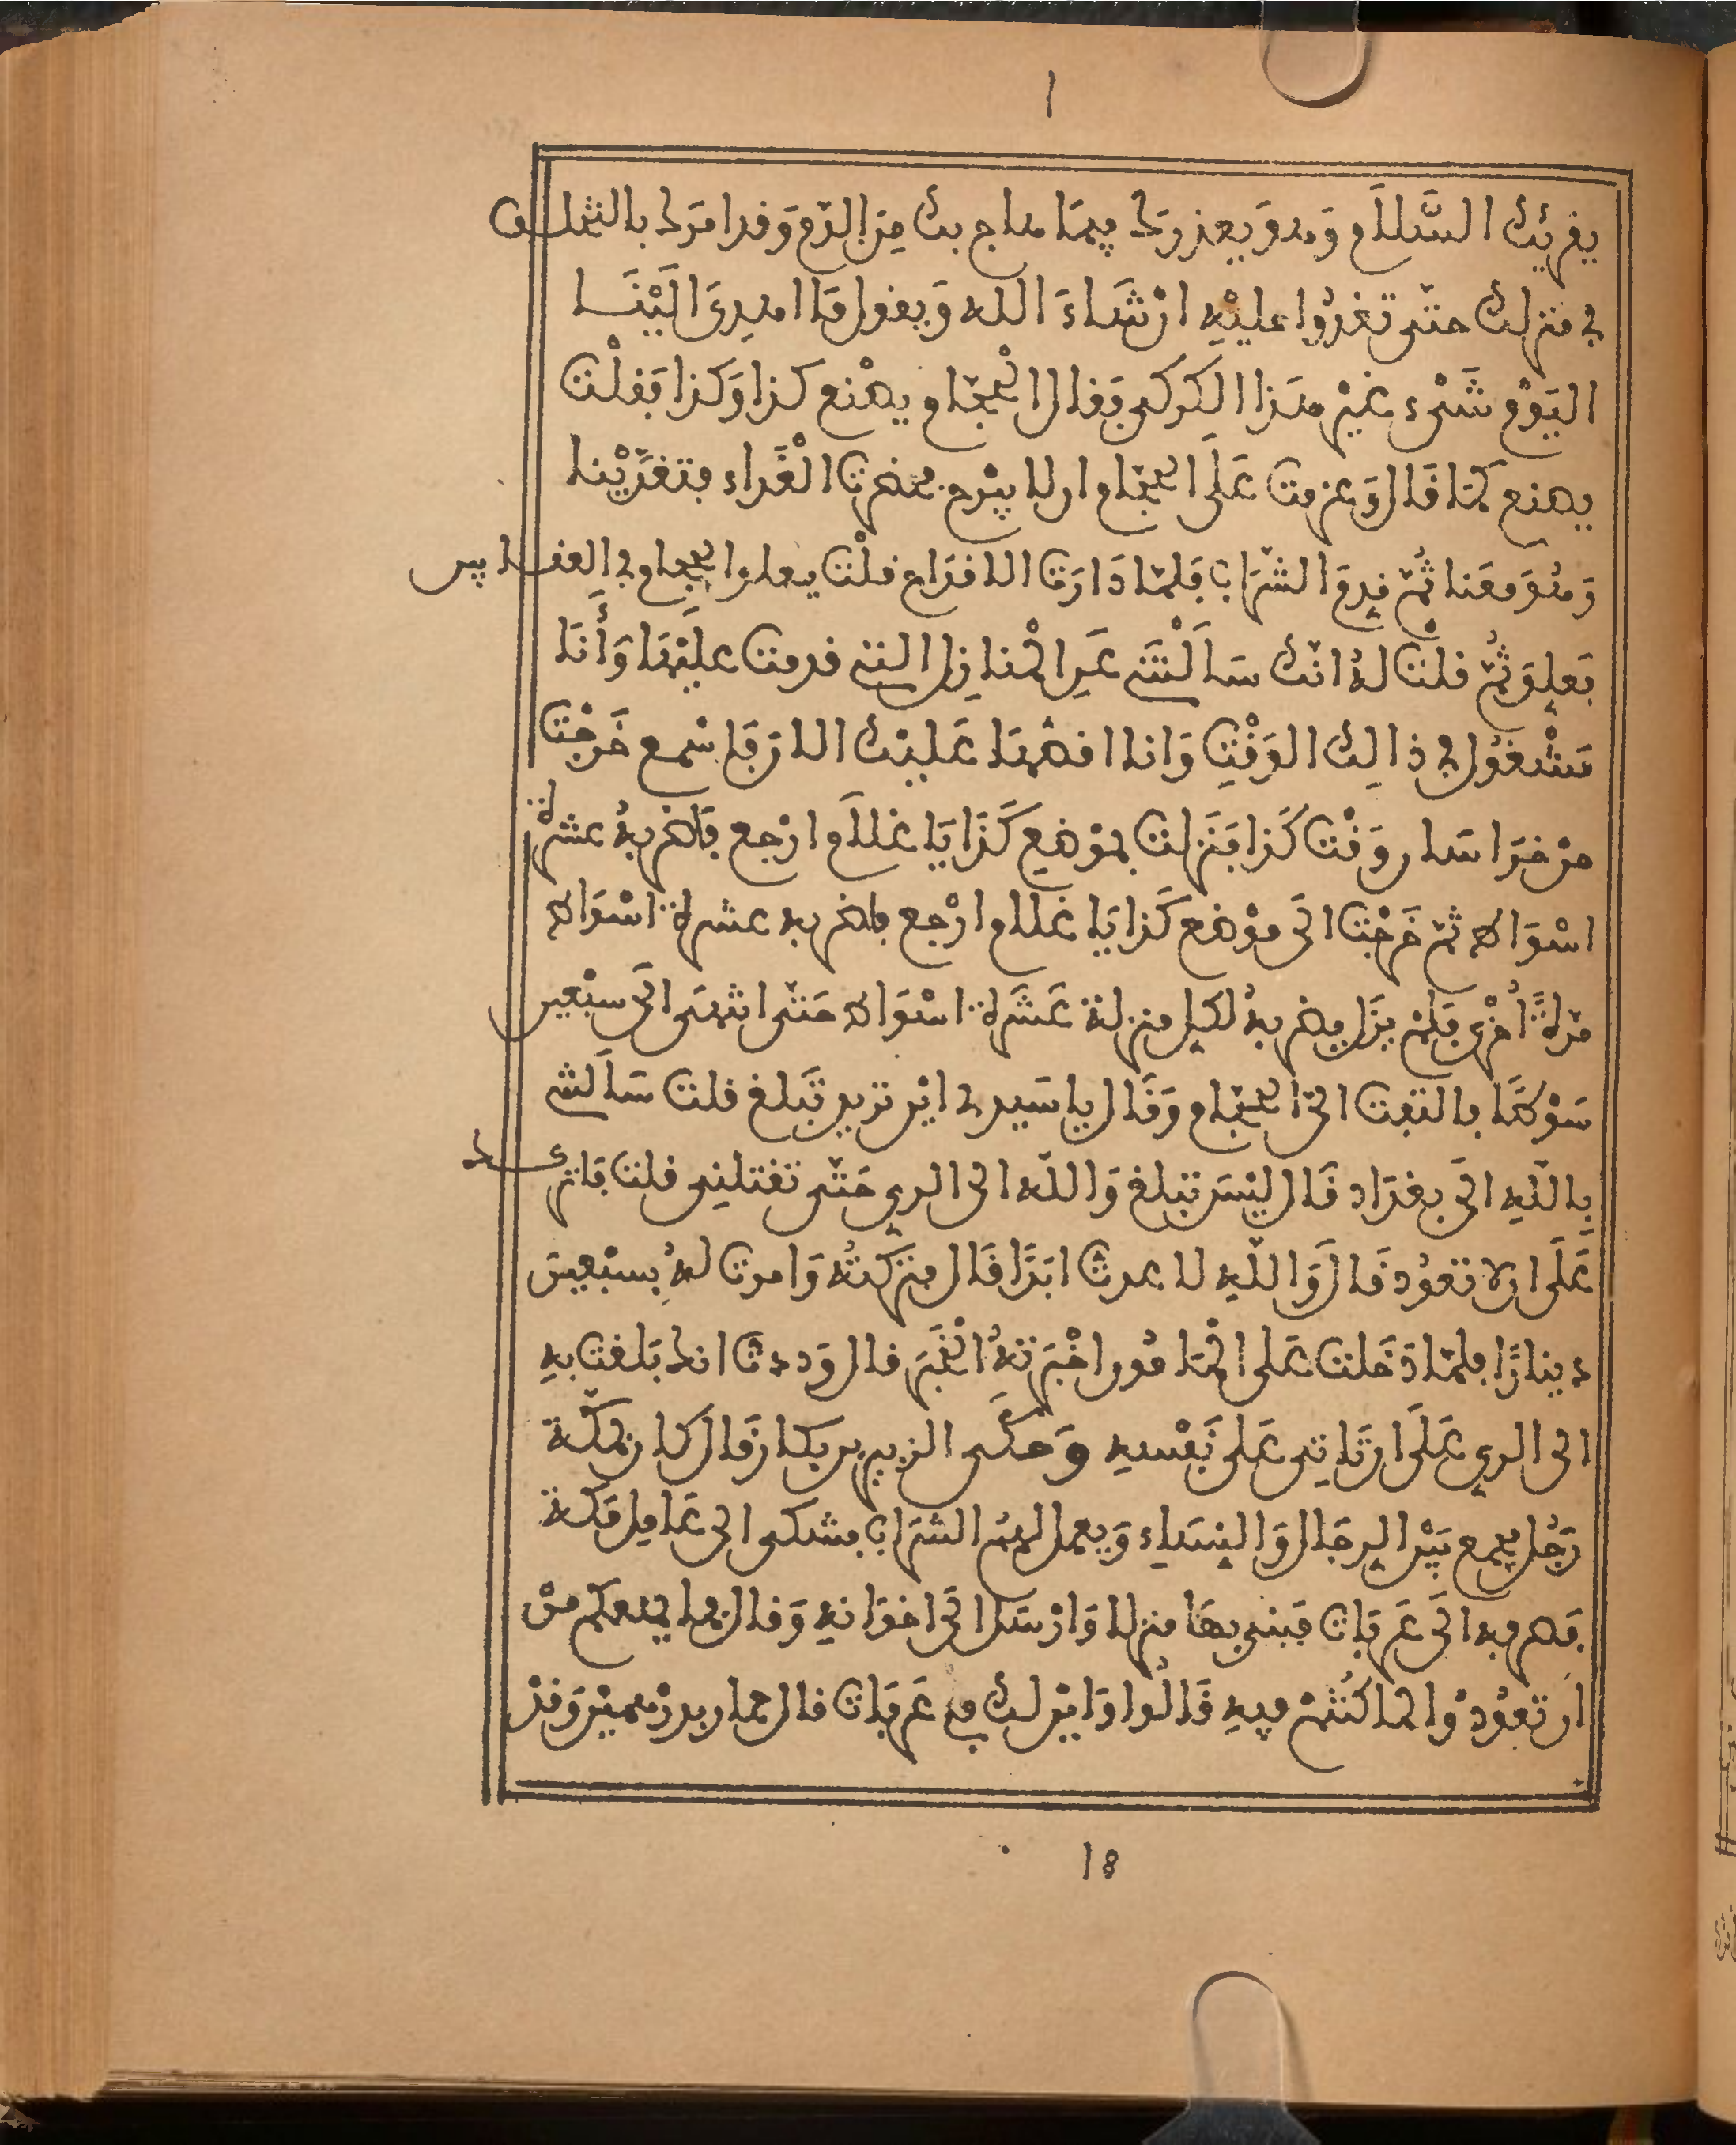 ا
يقرئك السَّلَام وَهو يعذرك فيمَا هاج بك مِنَ الدّم وَقد امرَك بالتخلف
في منزلك حتّى تغدُوا عليْهِ ان شَاءَ الله وَيقول مَا اهدِىَ اليْنَا
اليَوْم شَىْء غيْر هذا الكركى فَقال الحجّام يصْنع كذا وَكذا فقلْت
يصنع كمَا قَال وَعزمت عَلَى الحجّام ان لا يبْرح فحضرت الْغَداء فتغدّيْنا
وَهُوَ معَنا ثُمّ قدمَ الشّرَاب فلمّا دَارَت الاقدَاح قلْت يعلو الحجام في العقابين
فعلِوَ ثُمّ قلْت لهُ انّك سَاَلْتَنى عَن المْنازل التى قدمت عليْهَا وَأَنَا
مَشْغُول في ذالك الوَقْتِ وَانا اقصّهَا عَليْك الان فاسْمع خَرجْت
من خرَاسَان وَقْت كذا فنَزلت بموْضعِ كَذَا يَا غلَام ارْجع فاضربهُ عشرة
اسْوَاط ثمّ خَرجْت الَى موْضع كَذا يَا غلام ارْجع فاضربه عشرة اسْوَاط
مرّةً اُخْرى فلمْ يزَل يضربهُ لكل منزلة عَشَرة اسْوَاط حَتّى انتهَى الَى سبْعين
سَوْطًا فالتفت الىّ الحجّام وَقَال يا سَيدى اين تريد تَبلغ قلت سَاَلتك
بِاللّهِ الَى بغدَاد قَال ليْسَ تبلغ وَاللّه الى الري حَتّى تقتلنى قلت فاترك
عَلَى ان لا تعوُد قَال وَاللّهِ لا عدت ابَدًا قَال فتركتُه وَامرت لهُ بسبْعينَ
دينارًا فلمّا دَخلت عَلى المْامُون اخْبَرتهُ الْخَبَر قال وَددت انك بَلغت بهِ
الى الري عَلَى ان تَاتى عَلى نَفْسهِ وَحكَى الزبير بن بكار قَال كان بمكّة
رَجُل يجمع بَيْن الرجَال وَالنسَاء وَيعمل لهمُ الشرَاب فشكى الى عَامل مَكة
فَهرب الَى عَرفَات فبنى بهَا منزلا وَارْسَل الَى اخوَانهِ وَقال مَا يمنعكم منْ
ان تعوُدوْا لما كنْتُمْ فيهِ قَالُوا وَايْن لك مع عَرفَات قال حمار بدرْهميْن وَقدْ
١٨